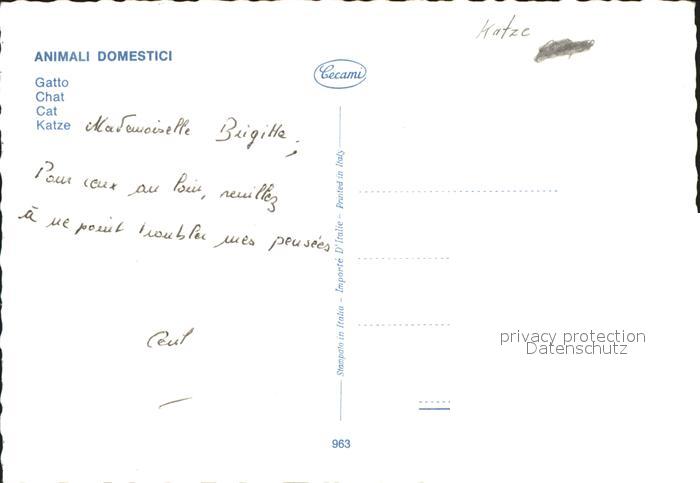 Katze
ANIMALI DOMESTICI
Gatto
Chat
Cat
Katze
Cecami
Mademoiselle Brigitte,
Pour ceux au loin, veuillez
à ne point troubler mes pensées
Stampato in Italia – Importé D'Italie – Printed in Italy
privacy protection
Datenschutz
963